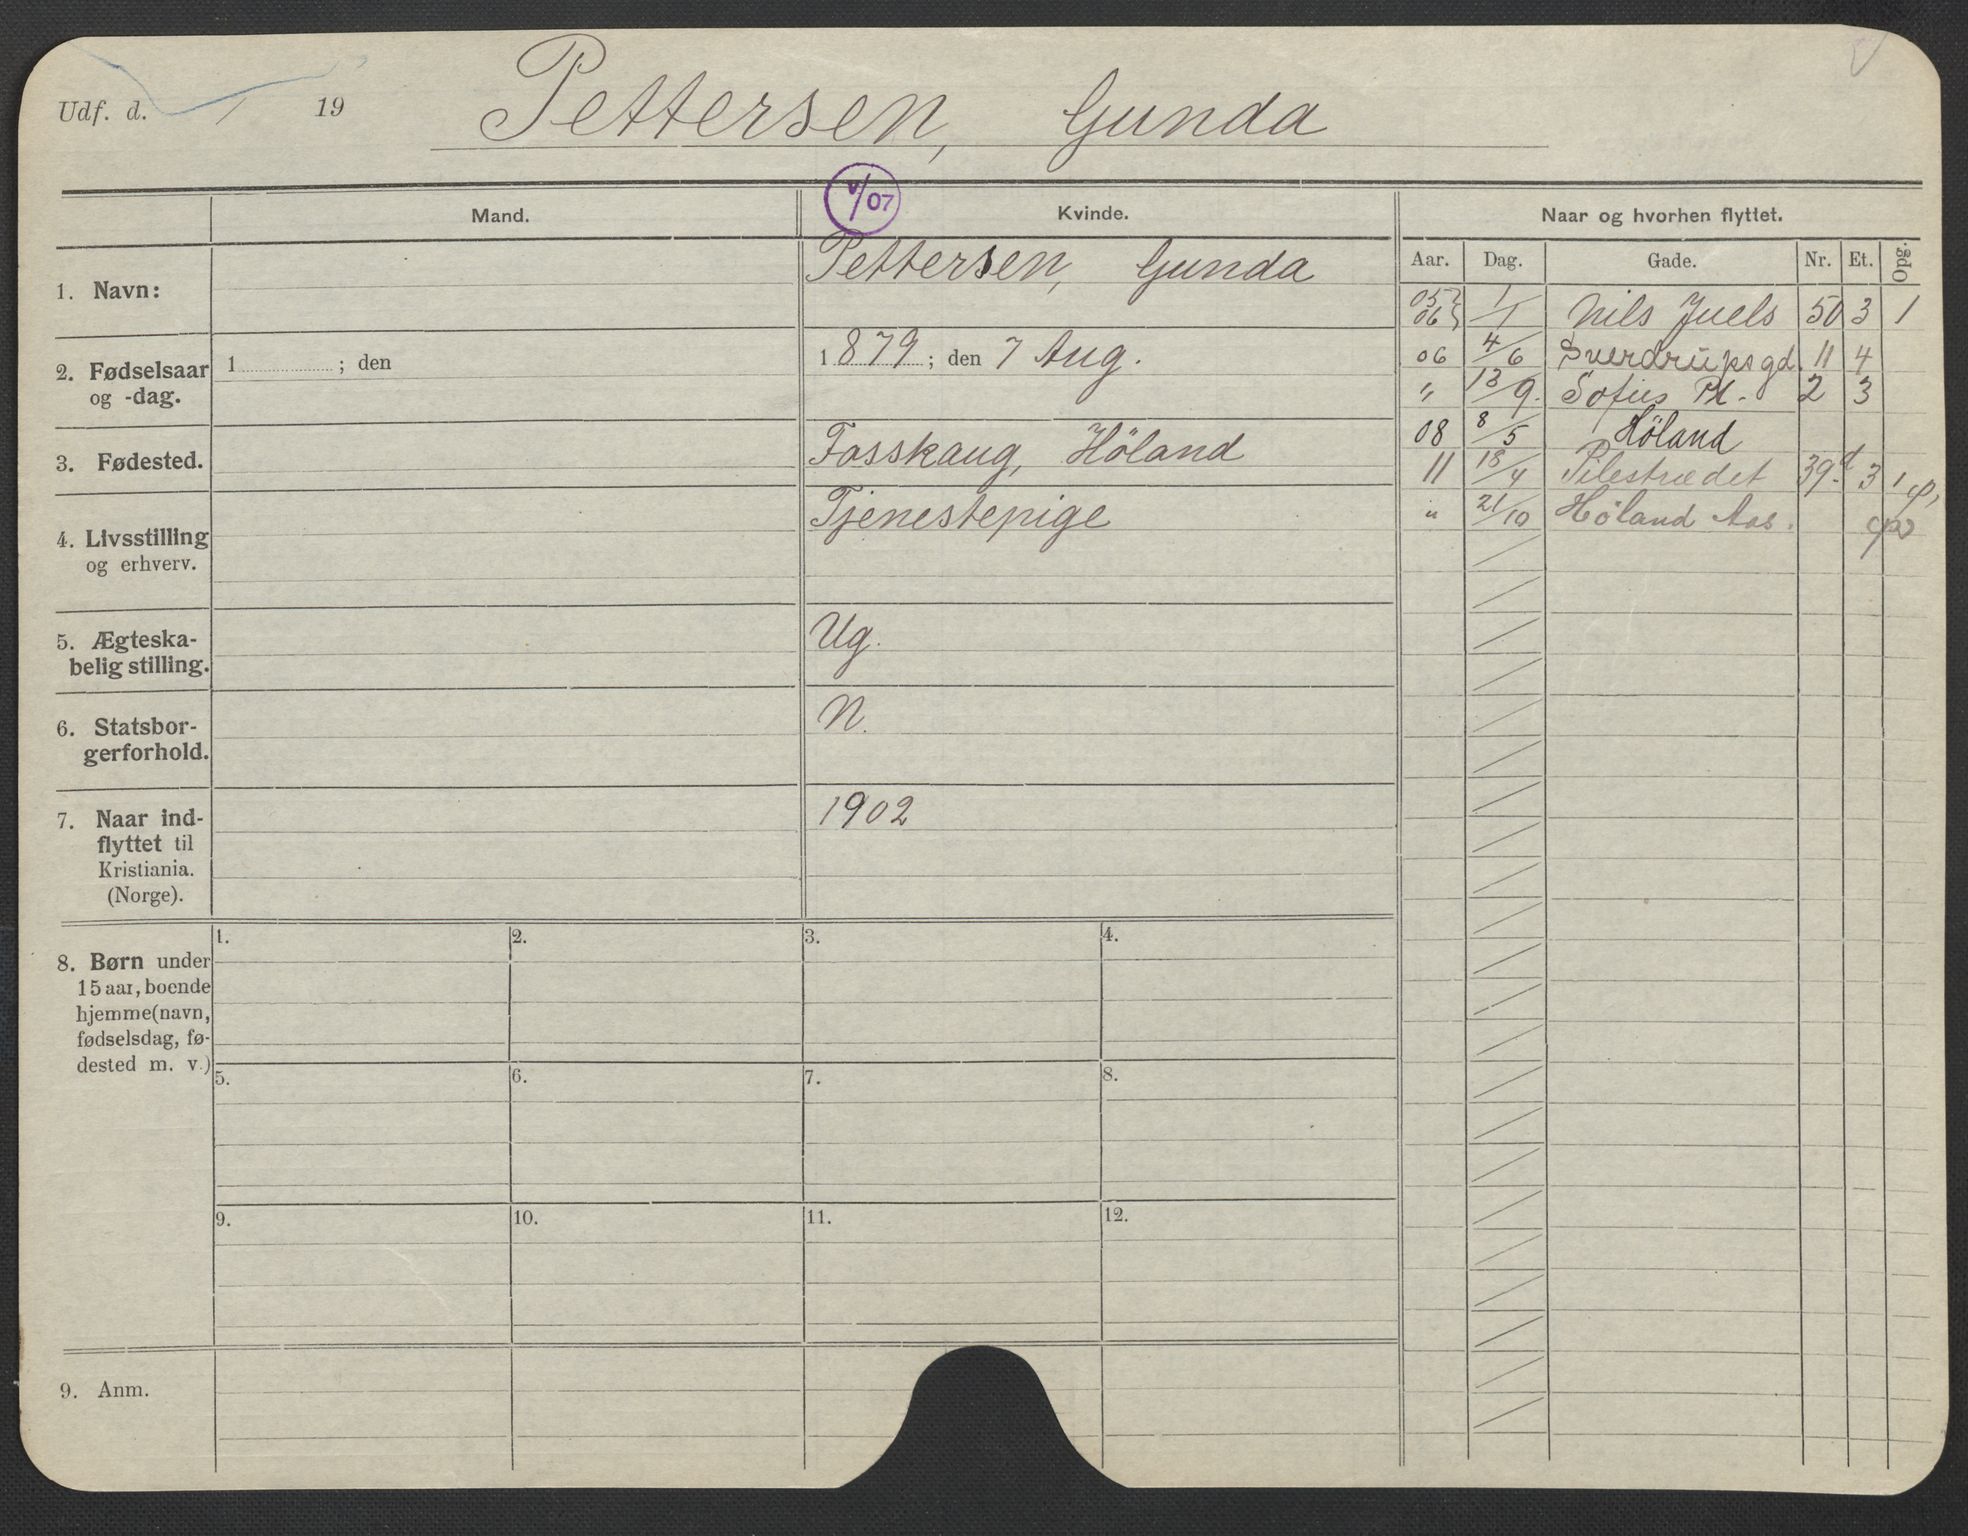 Udf. d. / 19 Pettersen, Gunda
Mand. Kvinde. Naar og hvorhen flyttet.
V/07
Aar. Dag. Gade. Nr. Et. Opg.
1. Navn: Pettersen, Gunda
05 06 1/1 Nils Juels 50 3 1
2. Fødselsaar og -dag. 1 ; den 1879 ; den 7 Aug.
06 4/6 Sverdrupsgd. 11 4
" 13/9. Sofies Pl. 2 3
08 8/5 Höland
3. Fødested. Fosskaug, Höland
11 18/4 Pilestrædet 39d 3 1
" 21/10 Høland Aas.
4. Livsstilling
og erhverv. Tjenestepige
5. Ægteska-
belig stilling. Ug.
6. Statsbor-
gerforhold. N.
7. Naar ind-
flyttet til
Kristiania.
(Norge). 1902
8. Børn under
15 aar, boende
hjemme (navn,
fødselsdag, fø-
dested m. v.)
1. 2. 3. 4.
5. 6. 7. 8.
9. 10. 11. 12.
9. Anm.